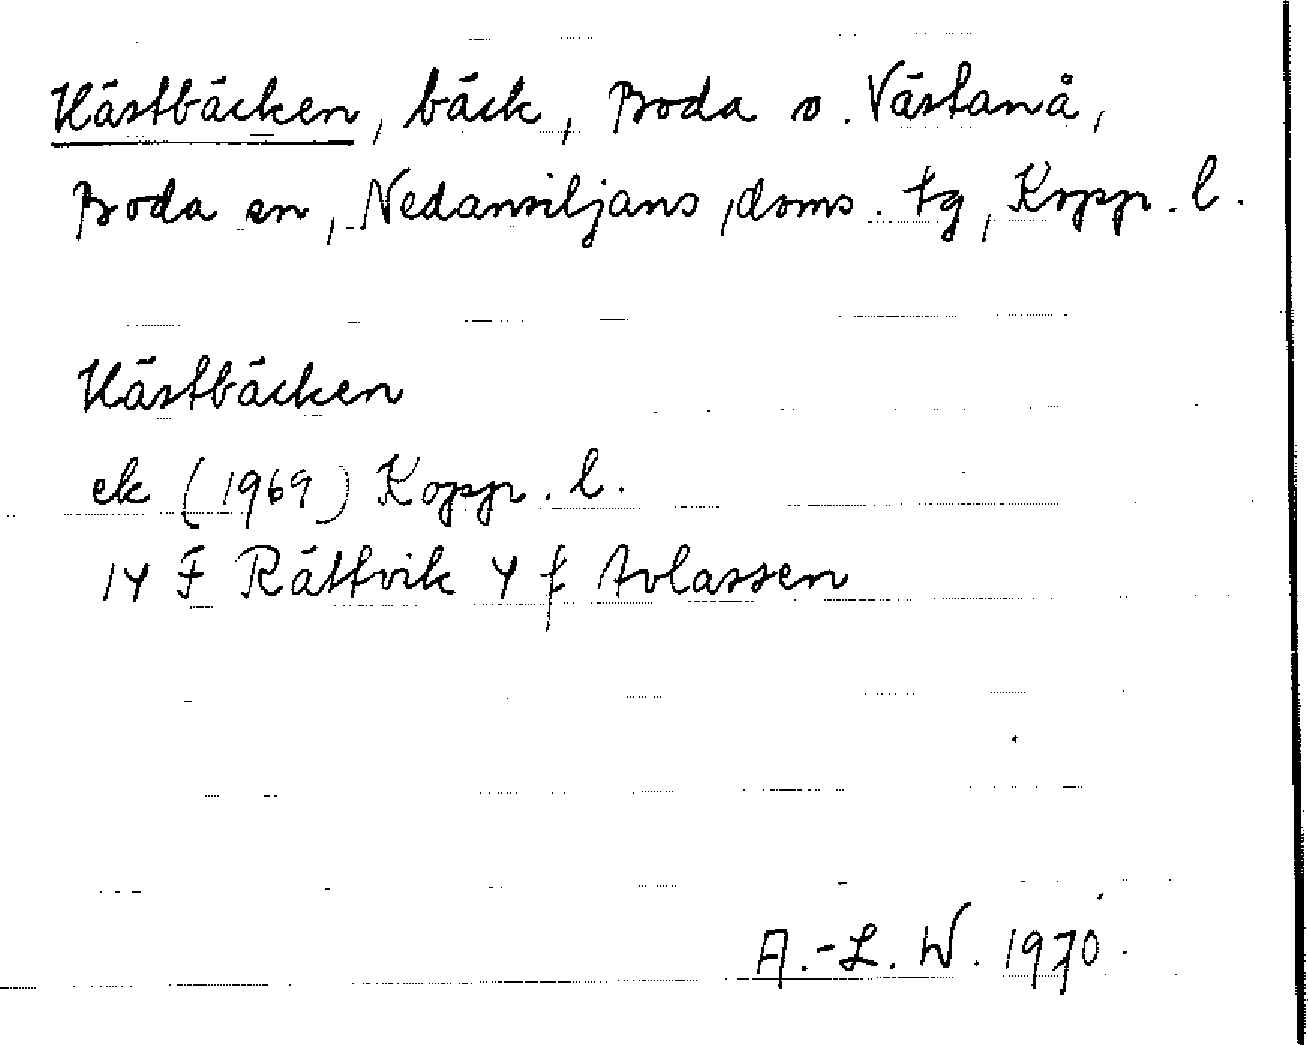 Hästbäcken, bäck, Boda o. Västanå,
Boda sn, Nedansiljans doms. tg, Kopp. l.
Hästbäcken
ek (1969) Kopp. l.
14 F Rättvik 4 f Avlassen
A.-L. W. 1970.